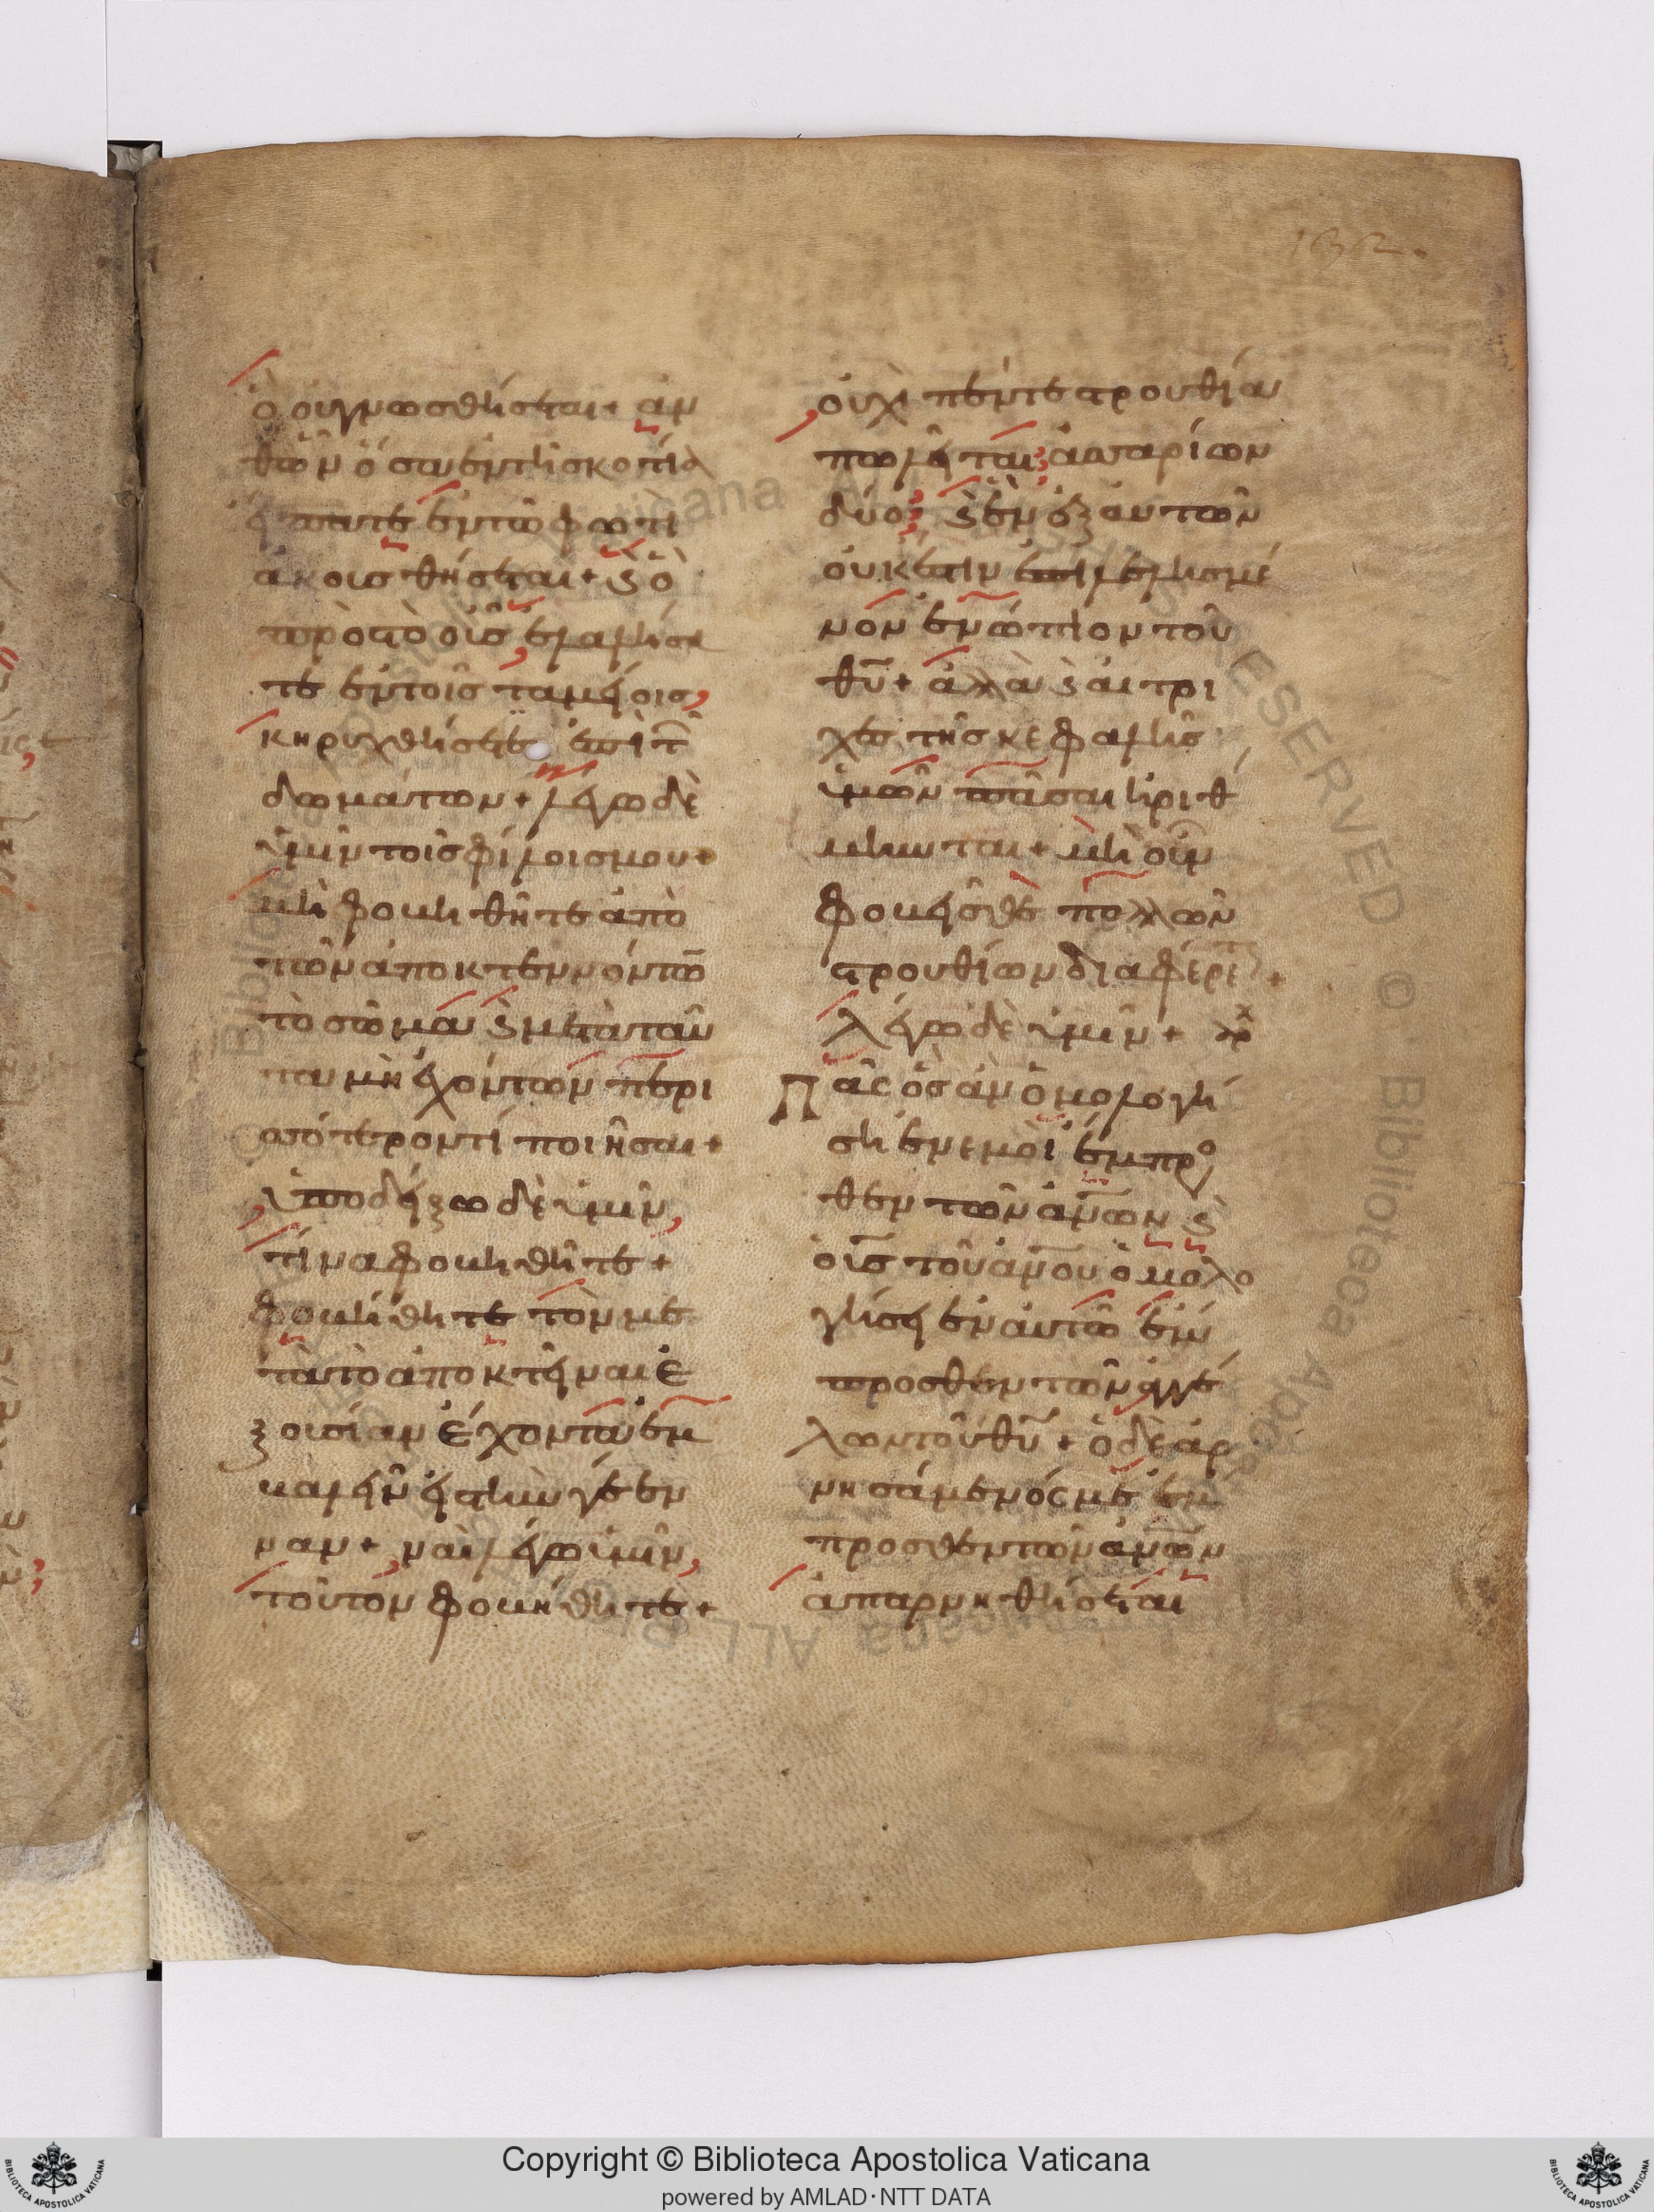 132.
ὃ οὐ γνωσθήσεται + ἀν
θῶν ὅσα ἐν τῆ σκοτία
εἴπατε ἐν τῶ φωτὶ
ἀκουσθήσεται + ϗ ὃ
πρὸς τὸ οὖς, ἐλαλήσα
τε ἐν τοῖς ταμείοις,
κηρυχθήσεται ἐπὶ τῶν
δωμάτων + λέγω δὲ
ὑμῖν τοῖς φίλοις μου +
μὴ φοβηθῆτε ἀπὸ
τῶν ἀποκτεννόντων
τὸ σῶμα ϗ μετὰ ταῦ
τα μὴ ἐχόντων περι
σσότερόν τι ποιῆσαι +
ὑποδείξω δὲ ὑμῖν,
τίνα φοβηθῆτε +
φοβήθητε τὸν με
τὰ τὸ ἀποκτεῖναι ἐ
ξουσίαν ἔχοντα ἐμ
βαλεῖν εἰς τὴν γέεν
ναν + ναὶ λέγω ὑμῖν,
τοῦτον φοβήθητε +
οὐχὶ πέντε στρουθία
πωλεῖται, ἀσσαρίων
δύο; ϗ ἓν ἐξ αὐτῶν
οὐκ ἔστιν ἐπιλελησμέ
νον ἐνώπιον τοῦ
θῦ + ἀλλὰ ϗ αἱ τρί
χες τῆς κεφαλῆς
ὑμῶν πᾶσαι ἠρίθ
μηνται + μὴ οὖν
φοβεῖσθε πολλῶν
στρουθίων διαφέρετε +
λέγω δὲ ὑμῖν +
Πᾶς ὃς ἂν ὁμολογή
ση ἐν ἐμοὶ ἔμπρο
θεν τῶν ἀνων ϗ
ὁ υἱς τοῦ ἀνου ὁμολο
γήσει ἐν αὐτῶ ἔμ
προσθεν τῶν ἀγγέ
λων τοῦ θῦ + ὁ δὲ ἀρ
νησάμενός με ἔμ
προσθεν τῶν ἀνων
ἀπαρνηθήσεται
Copyright © Biblioteca Apostolica Vaticana
powered by AMLAD·NTT DATA